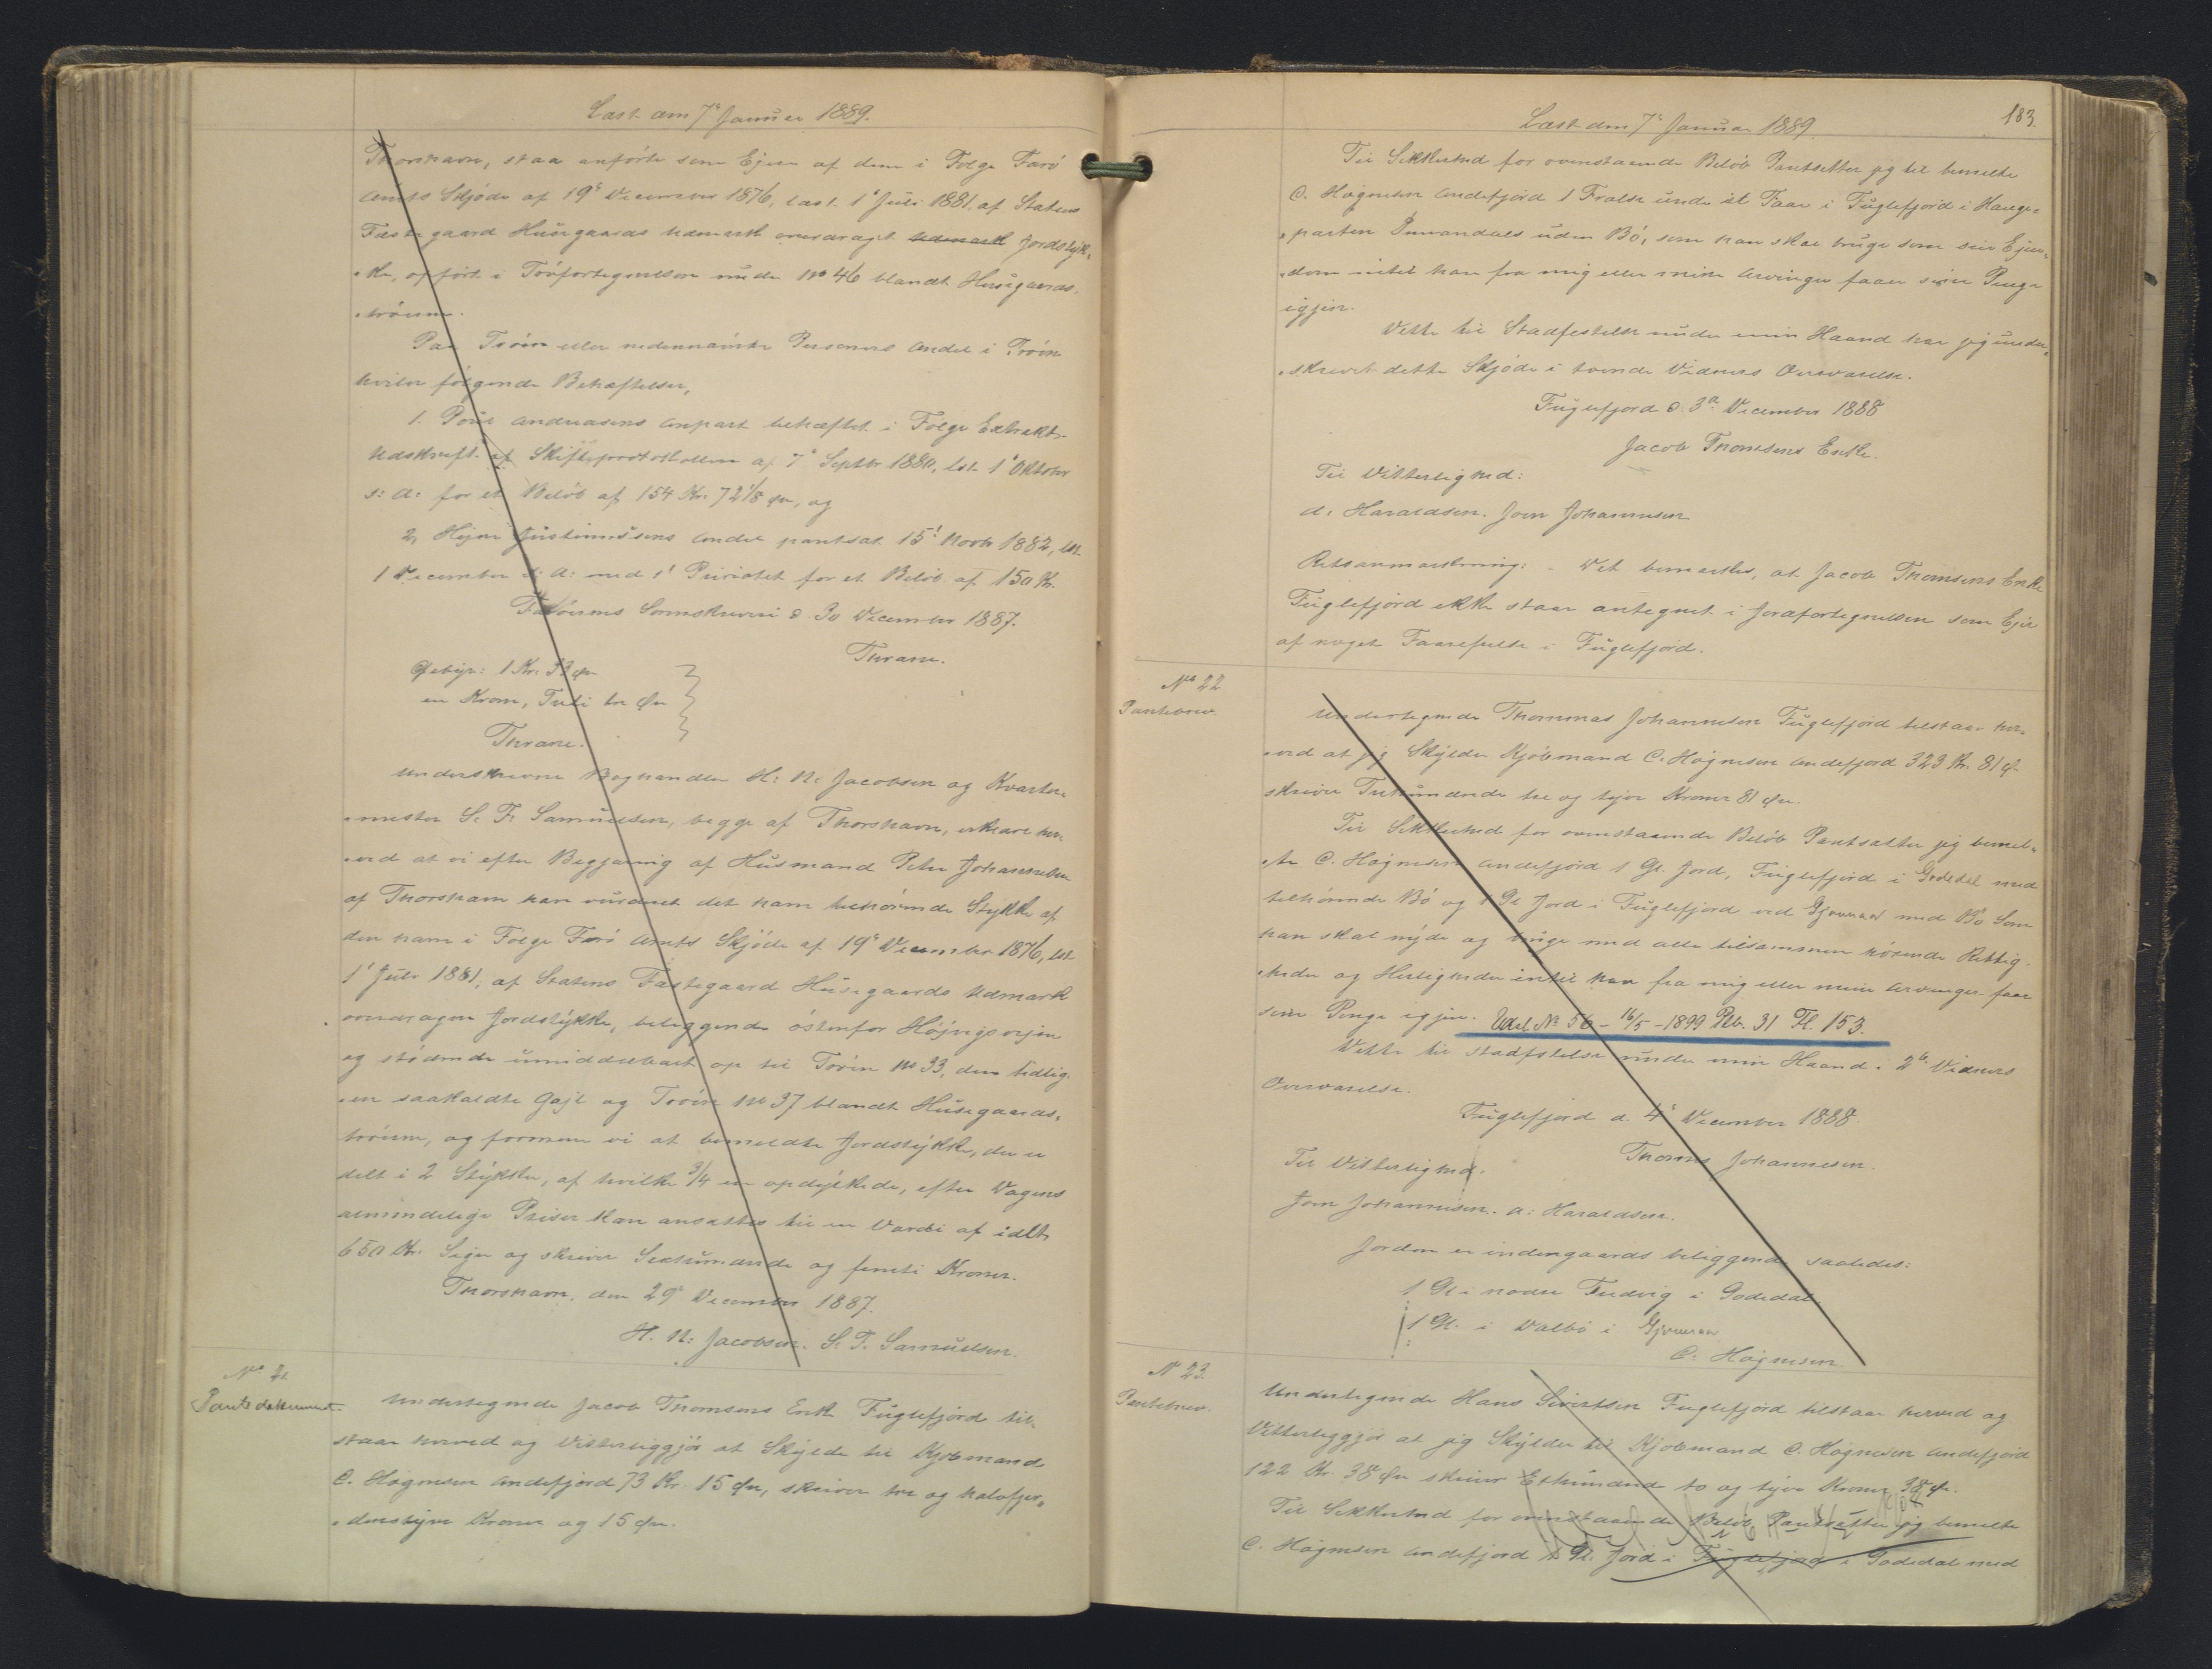 Læst den 7de Januar 1889.
Thorshavn, staa anförte som Ejere af dem i Følge Færö
Amts Skjöde af 19de December 1876, læst 1' Juli 1881, af Statens
Fæstegaard Húsegaards Udmark overdraget Udmark Jordstyk-
ke, opfört i Tróförtegnelsen under No 46 blandt Húsegaards-
tróerne.
Paa Tróen eller nedennævnte Personers Andel i Tróen
hviler fölgende Behæftelser,
1. Poul Andreasens Anpart behæftet i Følge Extrakt-
Udskrift af Skifteprotokollen af 7' Septbr 1880, læst 1' Oktober
s: A: for et Belöb af 154 Kr. 72 1/8 Öre, og
2, Hejne Justinussens Andel pantsat 15' Novbr 1882, læst
1 December s: A: med 1' Prioritet for et Belöb af 150 Kr.
Færöernes Sorenskriveri d. 30 December 1887.
Thrane.
Gebyr: 1 Kr. 33 Öre
en Krone, Treti tre Öre
Thrane.
Underskrevne Boghandler H: N: Jacobsen og Kvarter-
mester S. F. Samuelsen, begge af Thorshavn, erklære her-
ved at vi efter Begjæring af Húsmand Peter Johannesen
af Thorshavn har vurderet det ham tilhörende Stykke af
den ham i Følge Færö Amts Skjöde af 19' December 1876, læst
1' Juli 1881, af Statens Fæstegaard Húsegaards Udmark
overdragen Jordstykke, beliggende östenfor Höjvigsvejen
og stödende umiddelbart op til Tróen No 33, den tidlig-
ere saakaldte Gajl og Tróen No 37 blandt Húsegaards-
tróerne, og formene vi at bemeldte Jordstykke, der er
delt i 2 Stykker, af hvilke 3/4 er opdyrkede, efter Dagens
almindelige Priser kan ansættes til en Værdi af ialt
650 Kr. Siger og skriver Sexhundrede og femti Kroner.
Thorshavn, den 29' December 1887.
H. N: Jacobsen. S. F. Samuelsen.
No 21.
Pantedokument.
Undertegnede Jacob Thomsens Enke Fuglefjord til-
staar herved og Vitterliggjör at Skylde til Kjöbmand
C. Högnesen Andefjord 73 Kr. 15 Öre, skriver tre og halvfjer-
denstyve Kroner og 15 Öre.
Læst den 7' Januar 1889.
183.
Til Sikkerhed for ovenstaaende Belöb Pantsetter jeg til bemelte
C. Högnesen Andefjord 1 Fralse under et Faar i Fuglefjord i Hauge-
parten uden Bö, som han skal bruge som sin Ejen-
dom intil han fra mig eller mine Arvinger faaer sine Penge
igjen.
Dette til Stadfestelse under min Haand har jeg under-
skrevet dette Skjöde i tvende Vidners Overværelse.
Fuglefjord d. 3die December 1888
Jacob Thomsens Enke.
Til Vitterlighed:
A. Haraldsen. Joen Johannesen
Retsanmærkning: - Det bemærkes, at Jacob Thomsens Enke
Fuglefjord ikke staar antegnet i Jordfortegnelsen som Ejer
af noget Faarefælse i Fuglefjord.
No 22
Pantebrev.
Undertegnede Thommas Johannesen Fuglefjord tilstaar her-
ved at jeg Skylder Kjöbmand C. Högnesen Andefjord 323 Kr. 81 Ö
skriver Trehundrede tre og tyve Kroner 81 Öre.
Til Sikkerhed for ovenstaaende Belöb Pantsætter jeg bemel-
te C. Högnesen Andefjord 1 Gl. Jord, Fuglefjord i Godedal med
tilhörende Bö og 1 Gl Jord i Fuglefjord ved med Bö Som
han skal nyde og bruge med alle tilsammen hörende Rettig-
heder og Herligheder intil han fra mig eller mine Arvinger faar
sine Penge igjen. Udsl. No 56 - 16/5 - 1899 Ptb. 31 Fl. 153.
Dette til Stadfæstelse under min Haand i 2de Vidners
Overværelse.
Fuglefjord d. 4' December 1888.
Thomas Johannesen.
Til Vitterlighed.
Joen Johannesen. A: Haraldsen.
Jorden er indengaards beliggende saaledes:
1 Gl i nodre i Godedal
1 Gl. i Dalbö i
C. Högnesen.
N 23.
Pantebrev.
Undertegnede Hans Sivertsen Fuglefjord tilstaar herved og
Vitterliggjör at jeg Skylder til Kjöbmand C. Högnesen Andefjord
122 Kr. 38 Öre skriver Ethundred to og tyve Kroner 38 Öre.
Til Sikkerhed for ovenstaaende Belöb Pantsætter jeg bemelte
C. Högnesen Andefjord Gl. Jord i Fuglefjord i Godedal med